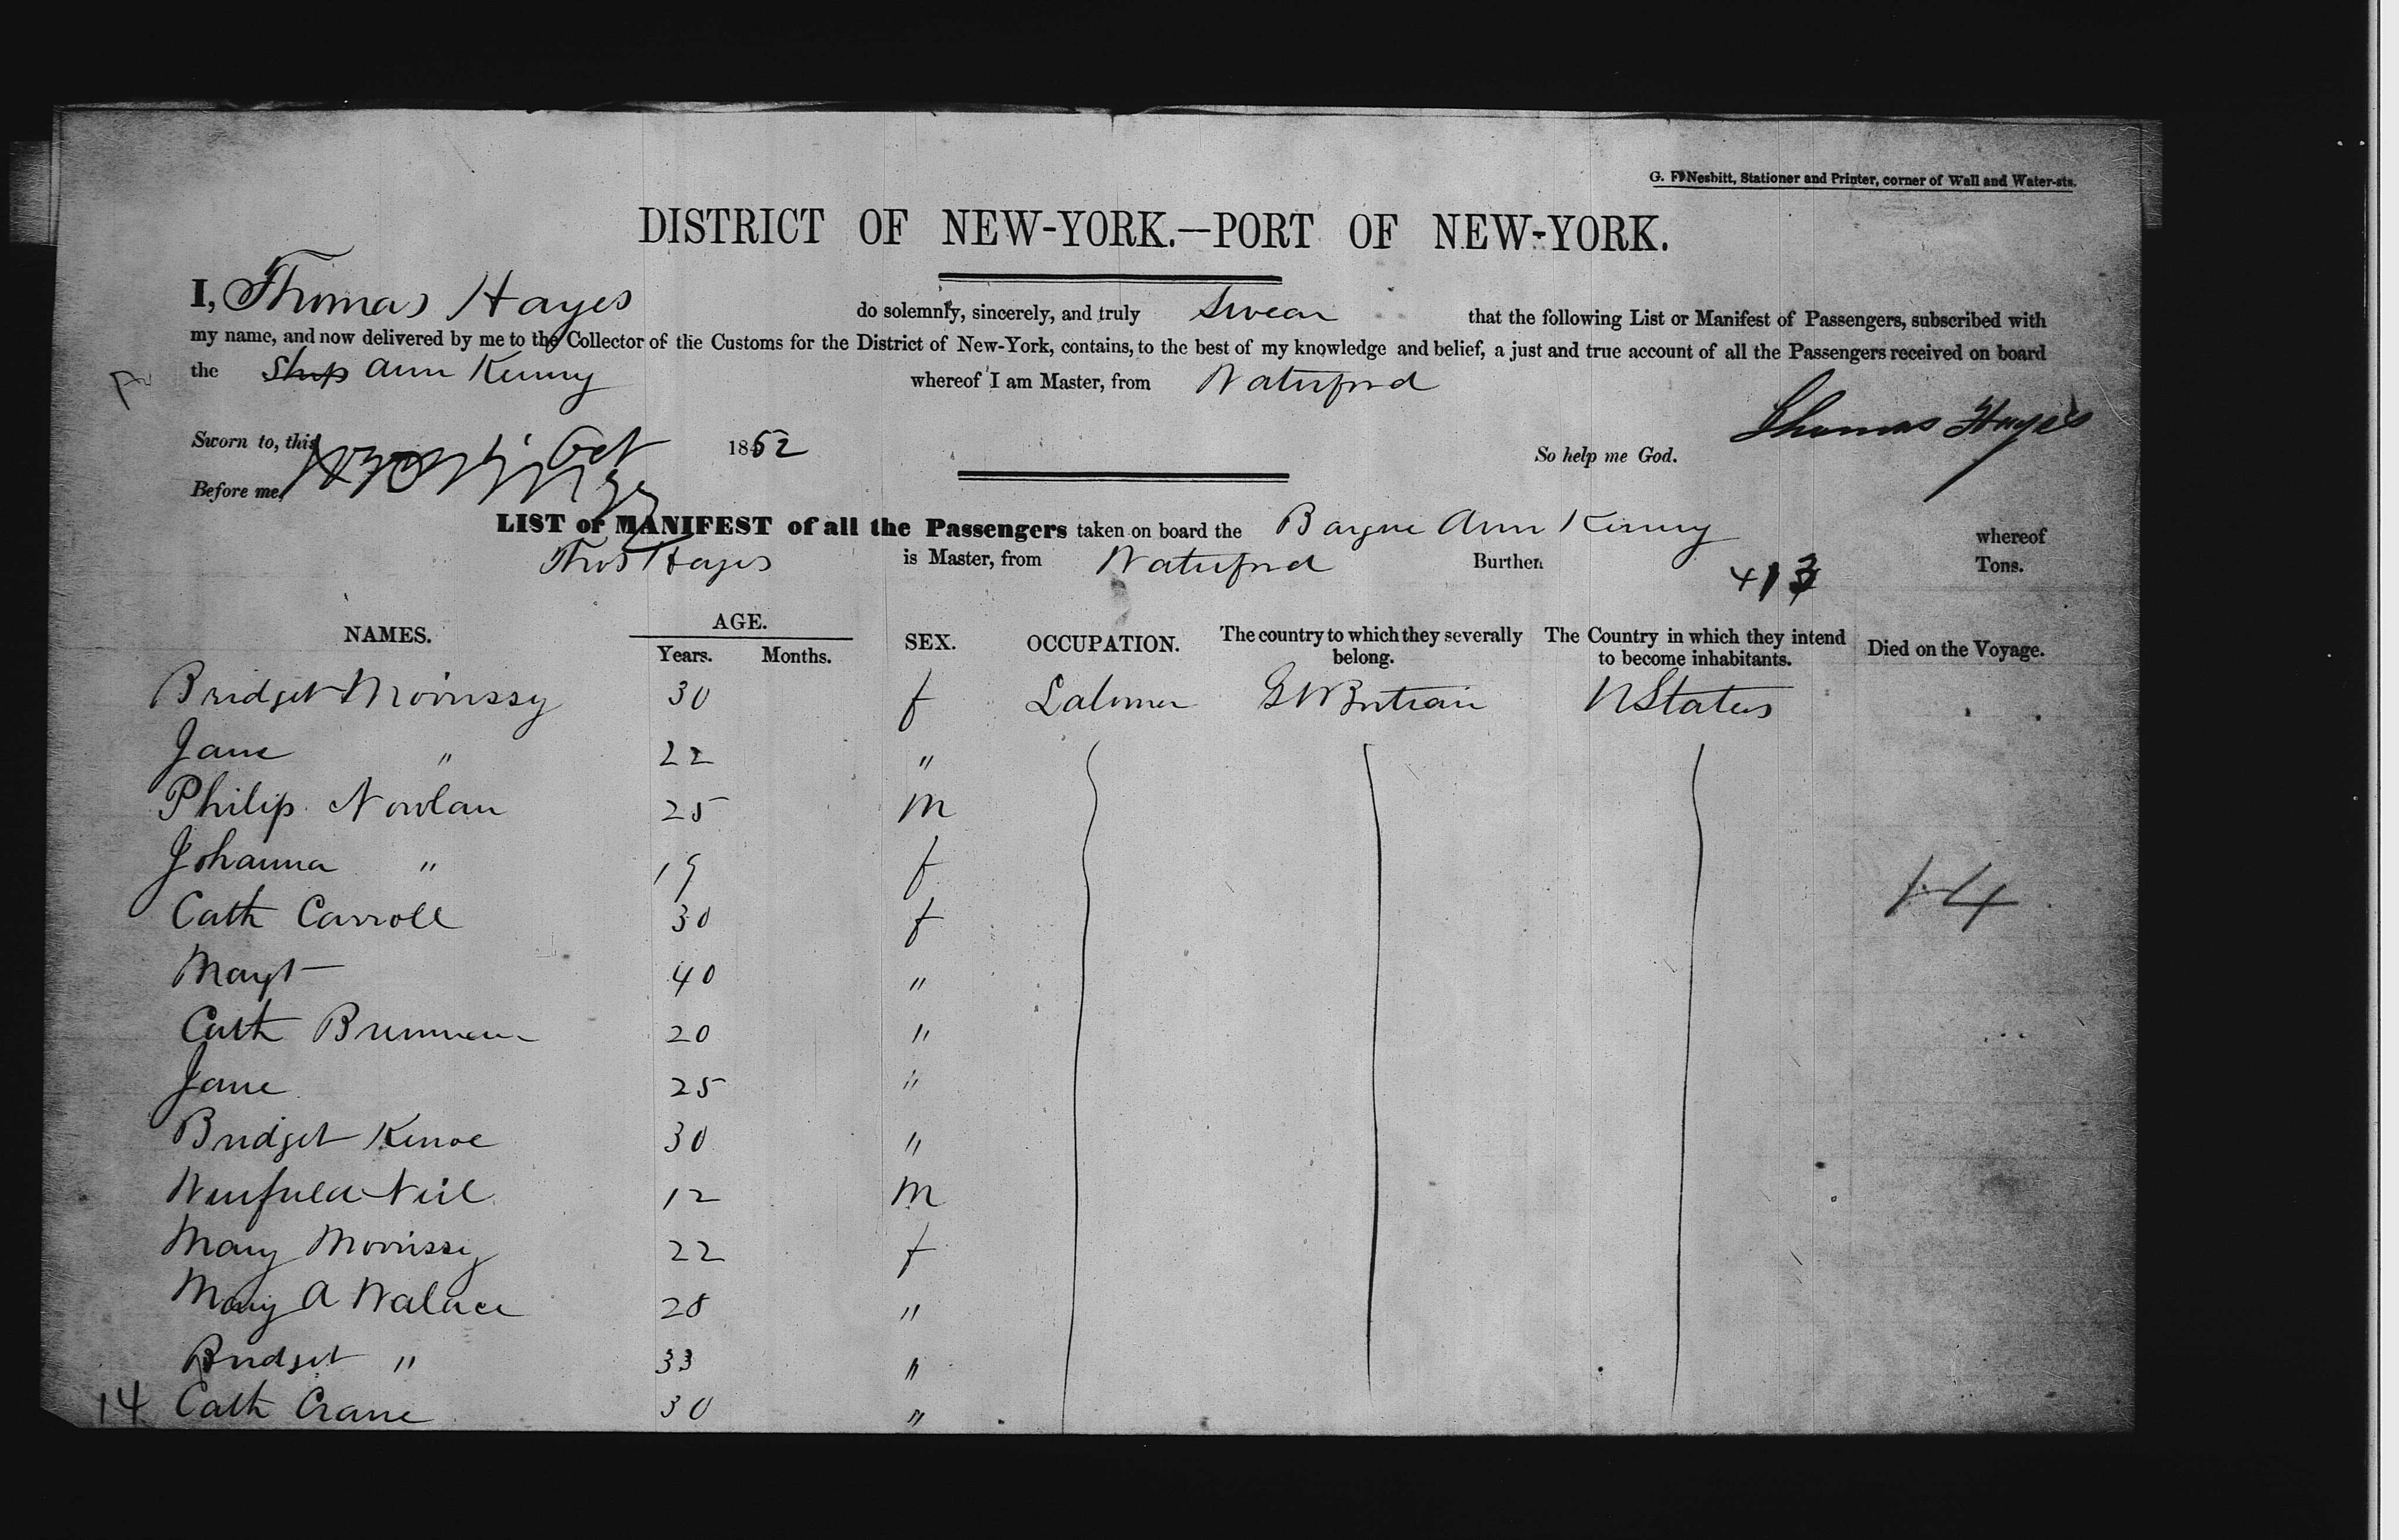 G. F. Nesbitt, Stationer and Printer, corner of Wall and Water-sts.
DISTRICT OF NEW-YORK.—PORT OF NEW-YORK.
I, Thomas Hayes do solemnly, sincerely, and truly Swear that the following List or Manifest of Passengers, subscribed with
my name, and now delivered by me to the Collector of the Customs for the District of New-York, contains, to the best of my knowledge and belief, a just and true account of all the Passengers received on board
the Ship Ann Kenny whereof I am Master, from Waterford
Thomas Hayes
Sworn to, this Oct 1852 So help me God.
Before me,
LIST or MANIFEST of all the Passengers taken on board the Barque Ann Kenny whereof
Thos Hayes is Master, from Waterford Burthen 413 Tons.
NAMES. AGE. SEX. OCCUPATION. The country to which they severally belong. The Country in which they intend to become inhabitants. Died on the Voyage.
Years. Months.
Bridget Morrissy 30 f Labourer Gt Britain U States
Jane " 22 "
Philip Nowlan 25 m
Johanna " 19 f
Cath Carroll 30 f
Margt 40 "
14
Cath Brennan 20 "
Jane 25 "
Bridget Kenoe 30 "
Winfield Neil 12 m
Mary Morrissy 22 f
Mary A Walace 28 "
Bridget " 33 "
14 Cath Crane 30 "